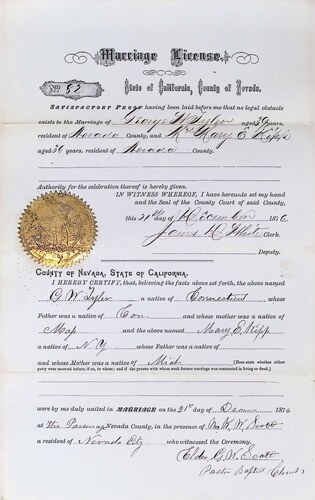 Marriage License.
No. 52
State of California, County of Nevada.
SATISFACTORY PROOF having been laid before me that no legal obstacle
exists to the Marriage of George W Tyler aged 39 years,
resident of Nevada County, and Mrs Mary E Kipp
aged 36 years. resident of Nevada County.
Authority for the celebration thereof is hereby given.
IN WITNESS WHEREOF, I have hereunto set my hand
and the Seal of the County Court of said County,
this 21st day December 1876
James D White Clerk.
Deputy.
COUNTY OF NEVADA, STATE OF CALIFORNIA.
I HEREBY CERTIFY, that, believing the facts above set forth, the above named
G. W. Tyler a native of Connecticut whose
Father was a native of Con. and whose mother was a native of
and the above named Mary E. Kipp
a native of N. Y whose Father was a native of
and whose Mother was a native of Mich [Here state whether either
party were married before; if so, to whom; and if the person with whom such former marriage was contracted is living or dead.]
were by me duly united in MARRIAGE on the 21st day of 1876
at the Nevada County, in the presence of W. W. Scott
a resident of Nevada City who witnessed the Ceremony.
Elder G. W. Scott
Pastor Baptist